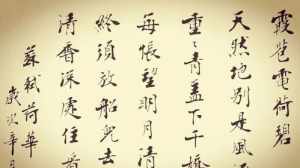 霞苞電荷碧
天然地別是風
重〻青蓋下千嬌
每悵望明月清
終須放船兒去
清香深處住
蘇軾荷華
歲次辛